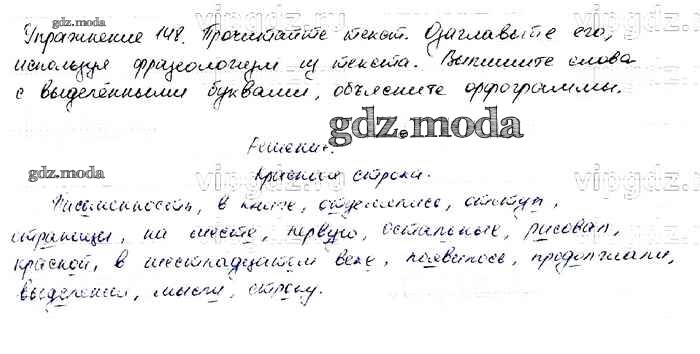 gdz.moda
Упражнение 148. Прочитайте текст. Озаглавьте его,
используя фразеологизм из текста. Выпишите слова
с выделенными буквами, объясните орфограммы.
gdz.moda
Решение.
gdz.moda
Красная строка.
vipgdz.vip
Письменность, в книге, отделялись, отступ,
страницы, на месте, первую, остальные, рисовал,
красной, в шестнадцатом веке, появилось, продолжали,
выделения, мысли, строку.